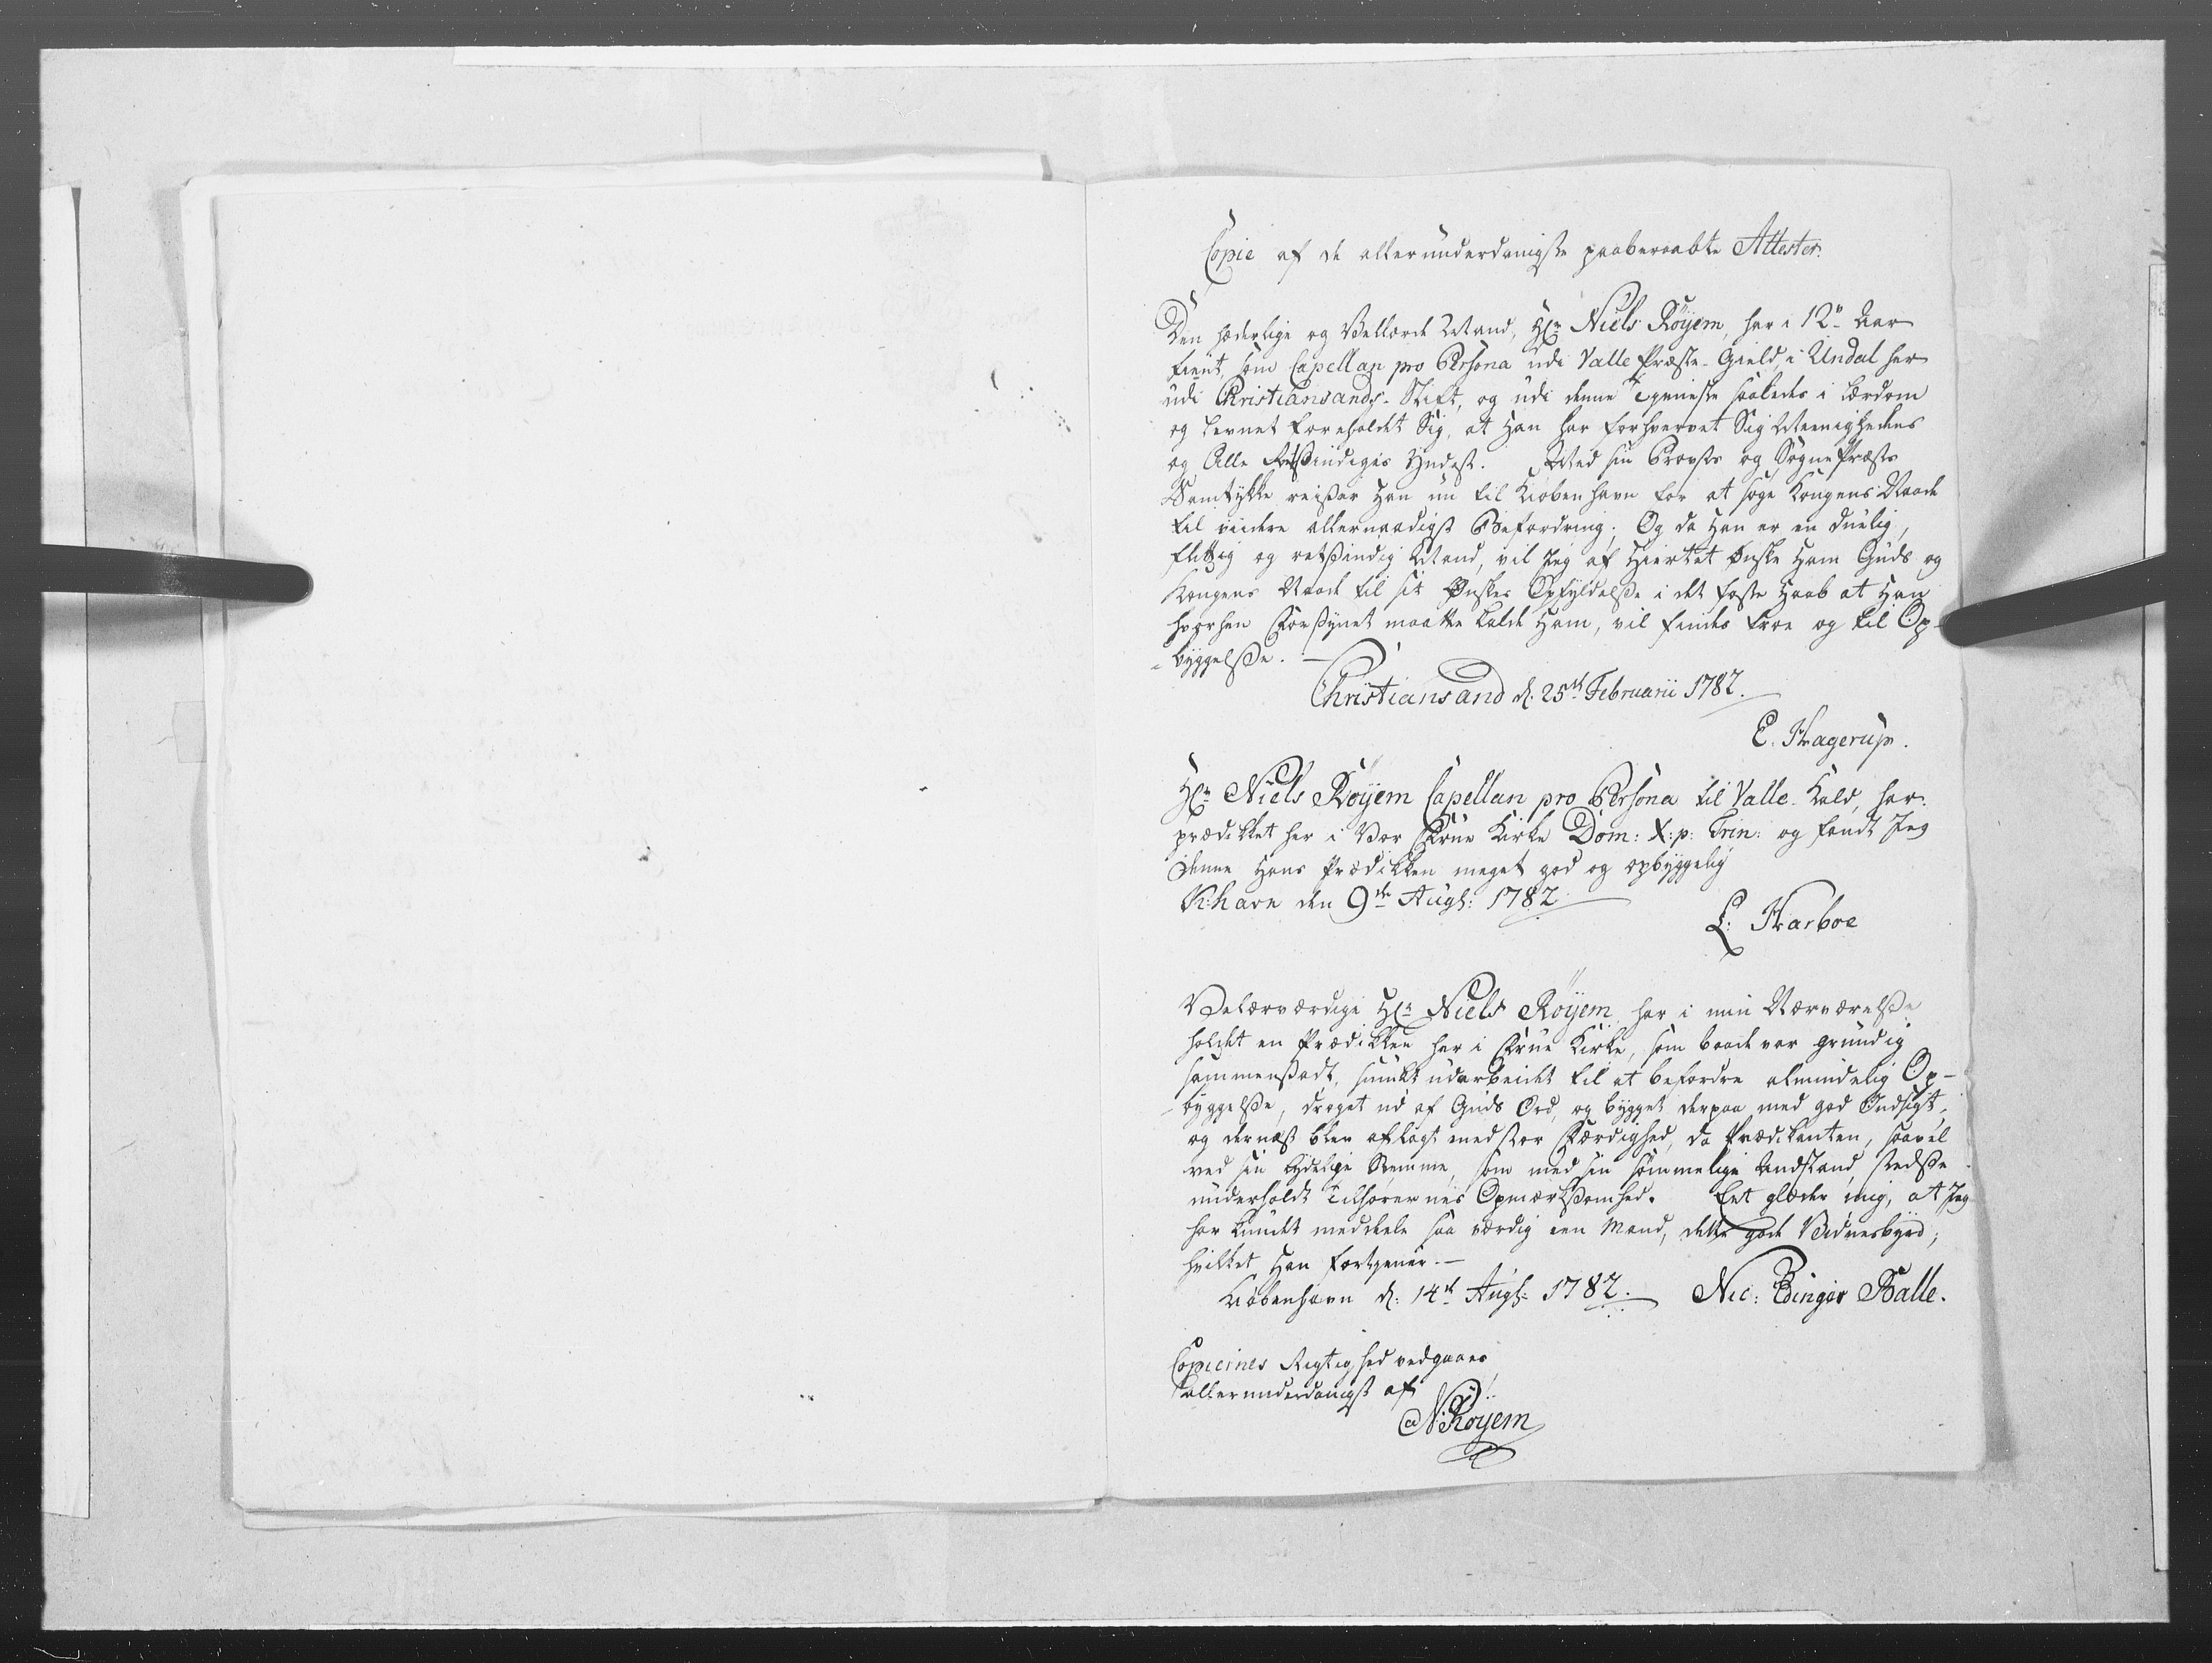 Copie af de allerunderdanigste paaberaabte Attester.
Den hæderlige og Vellærde Mand, Hr: Niels Röyem, har i 12te Aar
tient, som Capellan pro Persona udi Valle Præste-Gield, i Undal her
udi Christiansands-Stift, og udi denne Tieneste saaledes i Lærdom
og Levnet foreholdet Sig, at Han har forhvervet Sig Meenighedens
og Alle Retsindiges Yndest. Med sin Provsts og SognePræsts
Samtykke reiser Han nu til Kiøbenhavn for at søge Kongens Naade
til viidere allernaadigst Befordring; Og da Han er en duelig,
flittig og retsindig Mand, vil Jeg af Hiertet ønske Ham Guds og
Kongens Naade til sit Ønskes Opfyldelse i det faste Haab at Han
hvorhen Forsynet maatte kalde Ham, vil findes troe og til Op-
-byggelse. —
Christiansand d. 25de Februarii 1782.
E. Hagerup.
Hr: Niels Röyem Capellan pro Persona til Valle-Kald, har
prædikket her i Vor Frue Kirke Dom: X: p: Trin: og fandt Jeg
denne Hans Prædikken meget god og opbyggelig
K:havn den 9de Aug: 1782
L: Harboe
Velærværdige Hr: Niels Röyem har i min Nærværelse
holdet en Prædikken her i Frue Kirke, som baade var grundig
sammensadt, smukt udarbeidet til at befordre almindelig Op-
-byggelse, draget ud af Guds Ord, og bygget derpaa med god Indsigt,
og dernæst blev aflagt med stor Færdighed, da Prædikanten, saavel
ved sin tydelige Stemme, som med sin sømmelige Anstand, stedse
underholdt Tilhørernes Opmærksomhed. Det glæder mig, at Jeg
har kundet meddeele saa værdig een Mand, dette gode Vidnesbyrd,
hvilket Han fortiener. —
Kiöbenhavn d: 14de Aug: 1782. Nic: Edinger Balle.
Copiernes Rigtighed vedgaaes
allerunderdanigst af
N: Röyem